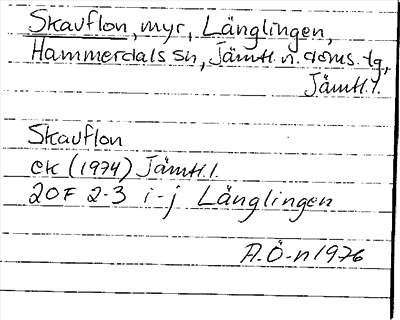 Skauflon, myr, Länglingen,
Hammerdals sn, Jämtl. n. doms. tg,
Jämtl. l.
Skauflon
ek (1974) Jämtl. l.
20F 2-3 i-j Länglingen
A.Ö-n 1976